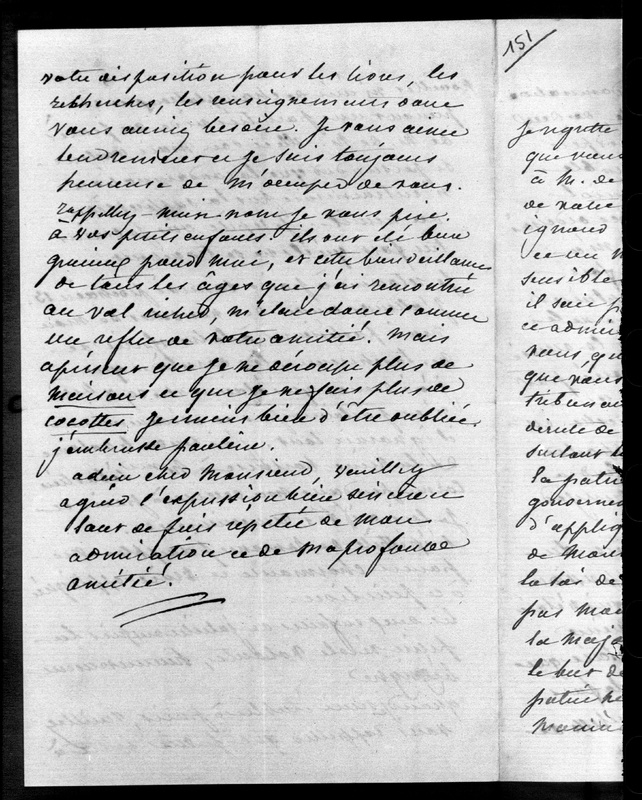 votre disposition pour les livres, les
recherches, les renseignemens dont
vous auriez besoin. Je vous aime
tendrement et je suis toujours
heureuse de m'occuper de vous.
rappellez-moi mon nom je vous prie
à vos petits enfants. ils ont été bien
pour moi, et cette bienveillance
de tous les âges que j'ai rencontrée
au val richer, m'est une douce comme
un reflet de votre amitié. Mais
à présent que je ne découpe plus de
maisons et que je ne fais plus de
cocottes, je crains bien d'être oubliée.
j'embrasse pauline.
adieu cher Monsieur, veuillez
agréer l'expression bien sincère
tant de fois répétée de mon
admiration et de ma profonde
amitié.
151
je regrette
que vous
à M. de
de votre
ignorant
ce
sensible
il
ce
vous, qu
que vous
tribun
de
surtout
la patri
gouvernem
d'appliq
de
la loi de
pas
la majo
le but de
patrie